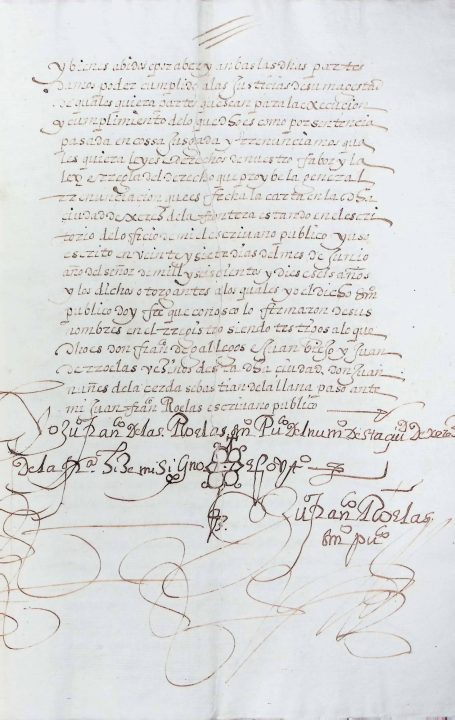 y bienes abidos e por aber y anbas las dhas partes
damos poder cumplido a las Justicias de su magestad
de quales quiera partes que sean para la execucion
y cumplimiento de lo que dho es como por sentencia
pasada en cossa Jusgada y rrenunciamos qua
les quiera leyes e derechos de nuestro fabor y la
ley e rregla del derecho que proybe la general
rrenunciacion que es fecha la carta en la dha
ciudad de xerez de la frontera estando en el escri
torio del oficio de mi el escrivano publico yuso
escrito en veinte y siete dias del mes de Junio
año del señor de mill y seiscientos y dies e seis años
y los dichos otorgantes a los quales yo el dicho sno
publico doy fee que conosco lo firmaron de sus
nombres en el rregistro siendo testigos a lo que
dho es don fran de gallegos e Juan y Juan
de rroelas vesinos desta dha ciudad don Juan
nuñes de la cerda sebastian de la llana paso ante
mi Juan fran Roelas escrivano publico
Yo Ju fran co de las Roelas sno Pu co del num o desta ciu d de xerez
de la fra fise mi signo testo
Ju fran co Roelas
sno pu co